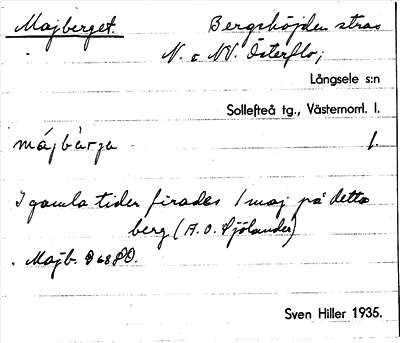 Majberget. Bergshöjden strax
N. o NV. Österflo;
Långsele s:n
Sollefteå tg., Västernorrl. l.
májbàrga f.
I gamla tider firades 1 maj på detta
berg (A. O. Sjölander)
. Majb.
Sven Hiller 1935.